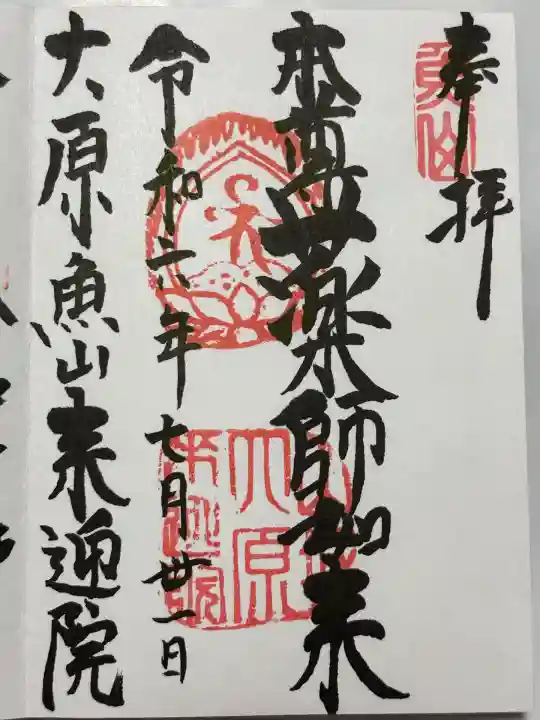 奉拝
本尊薬師如来
令和六年七月廿一日
大原魚山来迎院
魚山
大原
来迎院